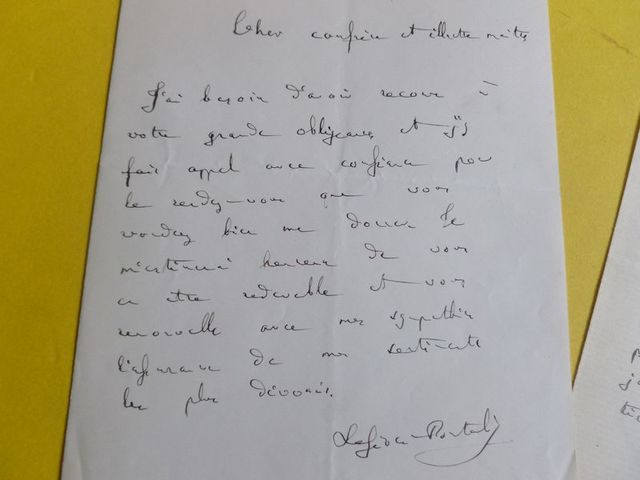 Cher confrère et illustre maître,
J'ai besoin d'avoir recours à
votre grande obligeance et j'y
fais appel avec confiance pour
le rendez-vous que vous
voudrez bien me donner. Je
m'estimerai heureux de vous
en être redevable et vous
renouvelle avec mes sympathies
l'assurance de mes sentiments
les plus dévoués.